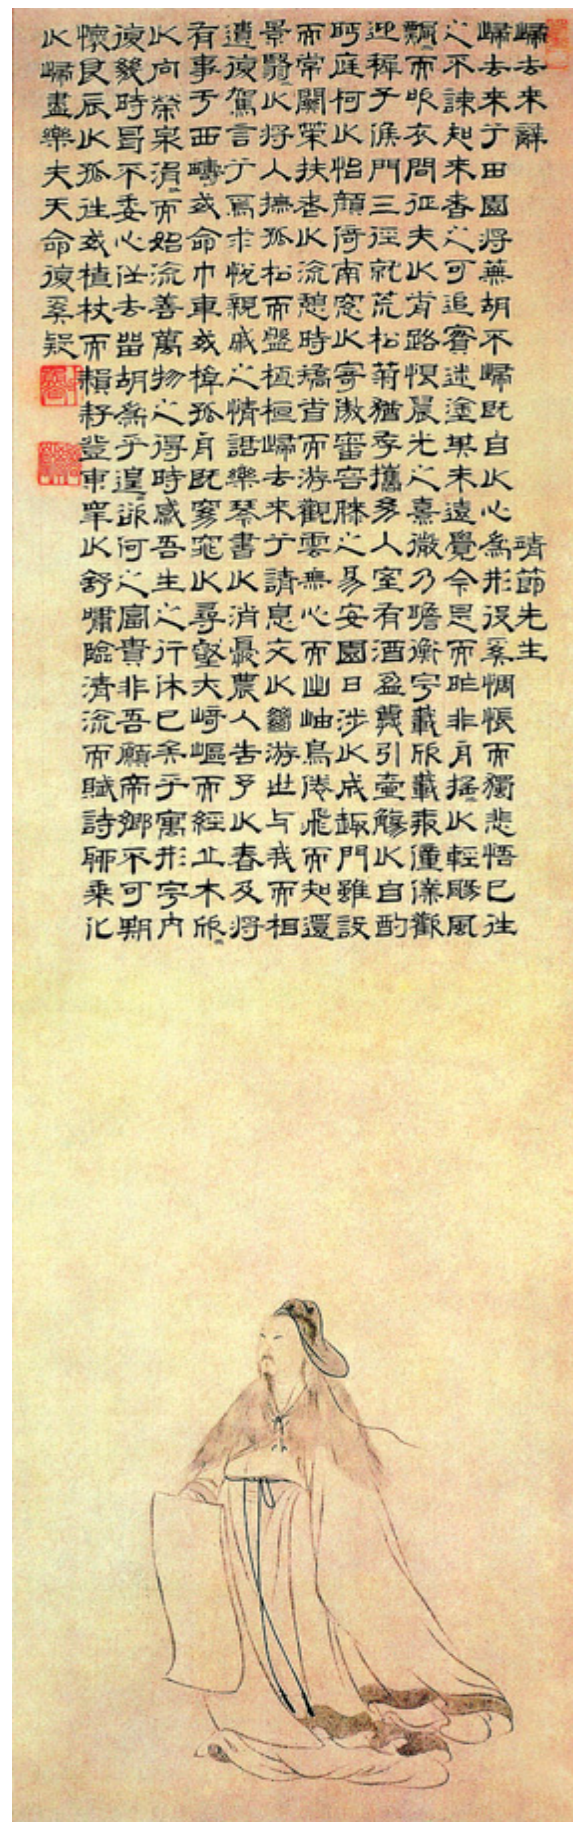 歸去来辭 靖節先生
歸去来兮田園将蕪胡不歸既自以心為形役奚惆悵而獨悲悟已往
之不諫知来者之可追實迷塗其未遠覺今是而昨非舟搖〻以輕颺風
飄〻而吹衣問征夫以前路恨晨光之熹微乃瞻衡宇載欣載奔僮僕歡
迎稚子候門三徑就荒松菊猶存攜幼入室有酒盈罇引壺觴以自酌
眄庭柯以怡顏倚南窗以寄傲審容膝之易安園日涉以成趣門雖設
而常關策扶老以流憩時矯首而游觀雲無心而出岫鳥倦飛而知還
景翳〻以将入撫孤松而盤桓歸去来兮請息交以絕游世与我而相
遺復駕言兮焉求悅親戚之情話樂琴書以消憂農人告予以春及将
有事于西疇或命巾車或棹孤舟既窈窕以尋壑亦崎嶇而經丘木欣〻
以向榮泉涓〻而始流善萬物之得時感吾生之行休已矣乎寓形宇內
復幾時曷不委心任去留胡為乎遑〻欲何之富貴非吾願帝鄉不可期
懷良辰以孤往或植杖而耘耔登東皋以舒嘯臨清流而賦詩聊乘化
以歸盡樂夫天命復奚疑